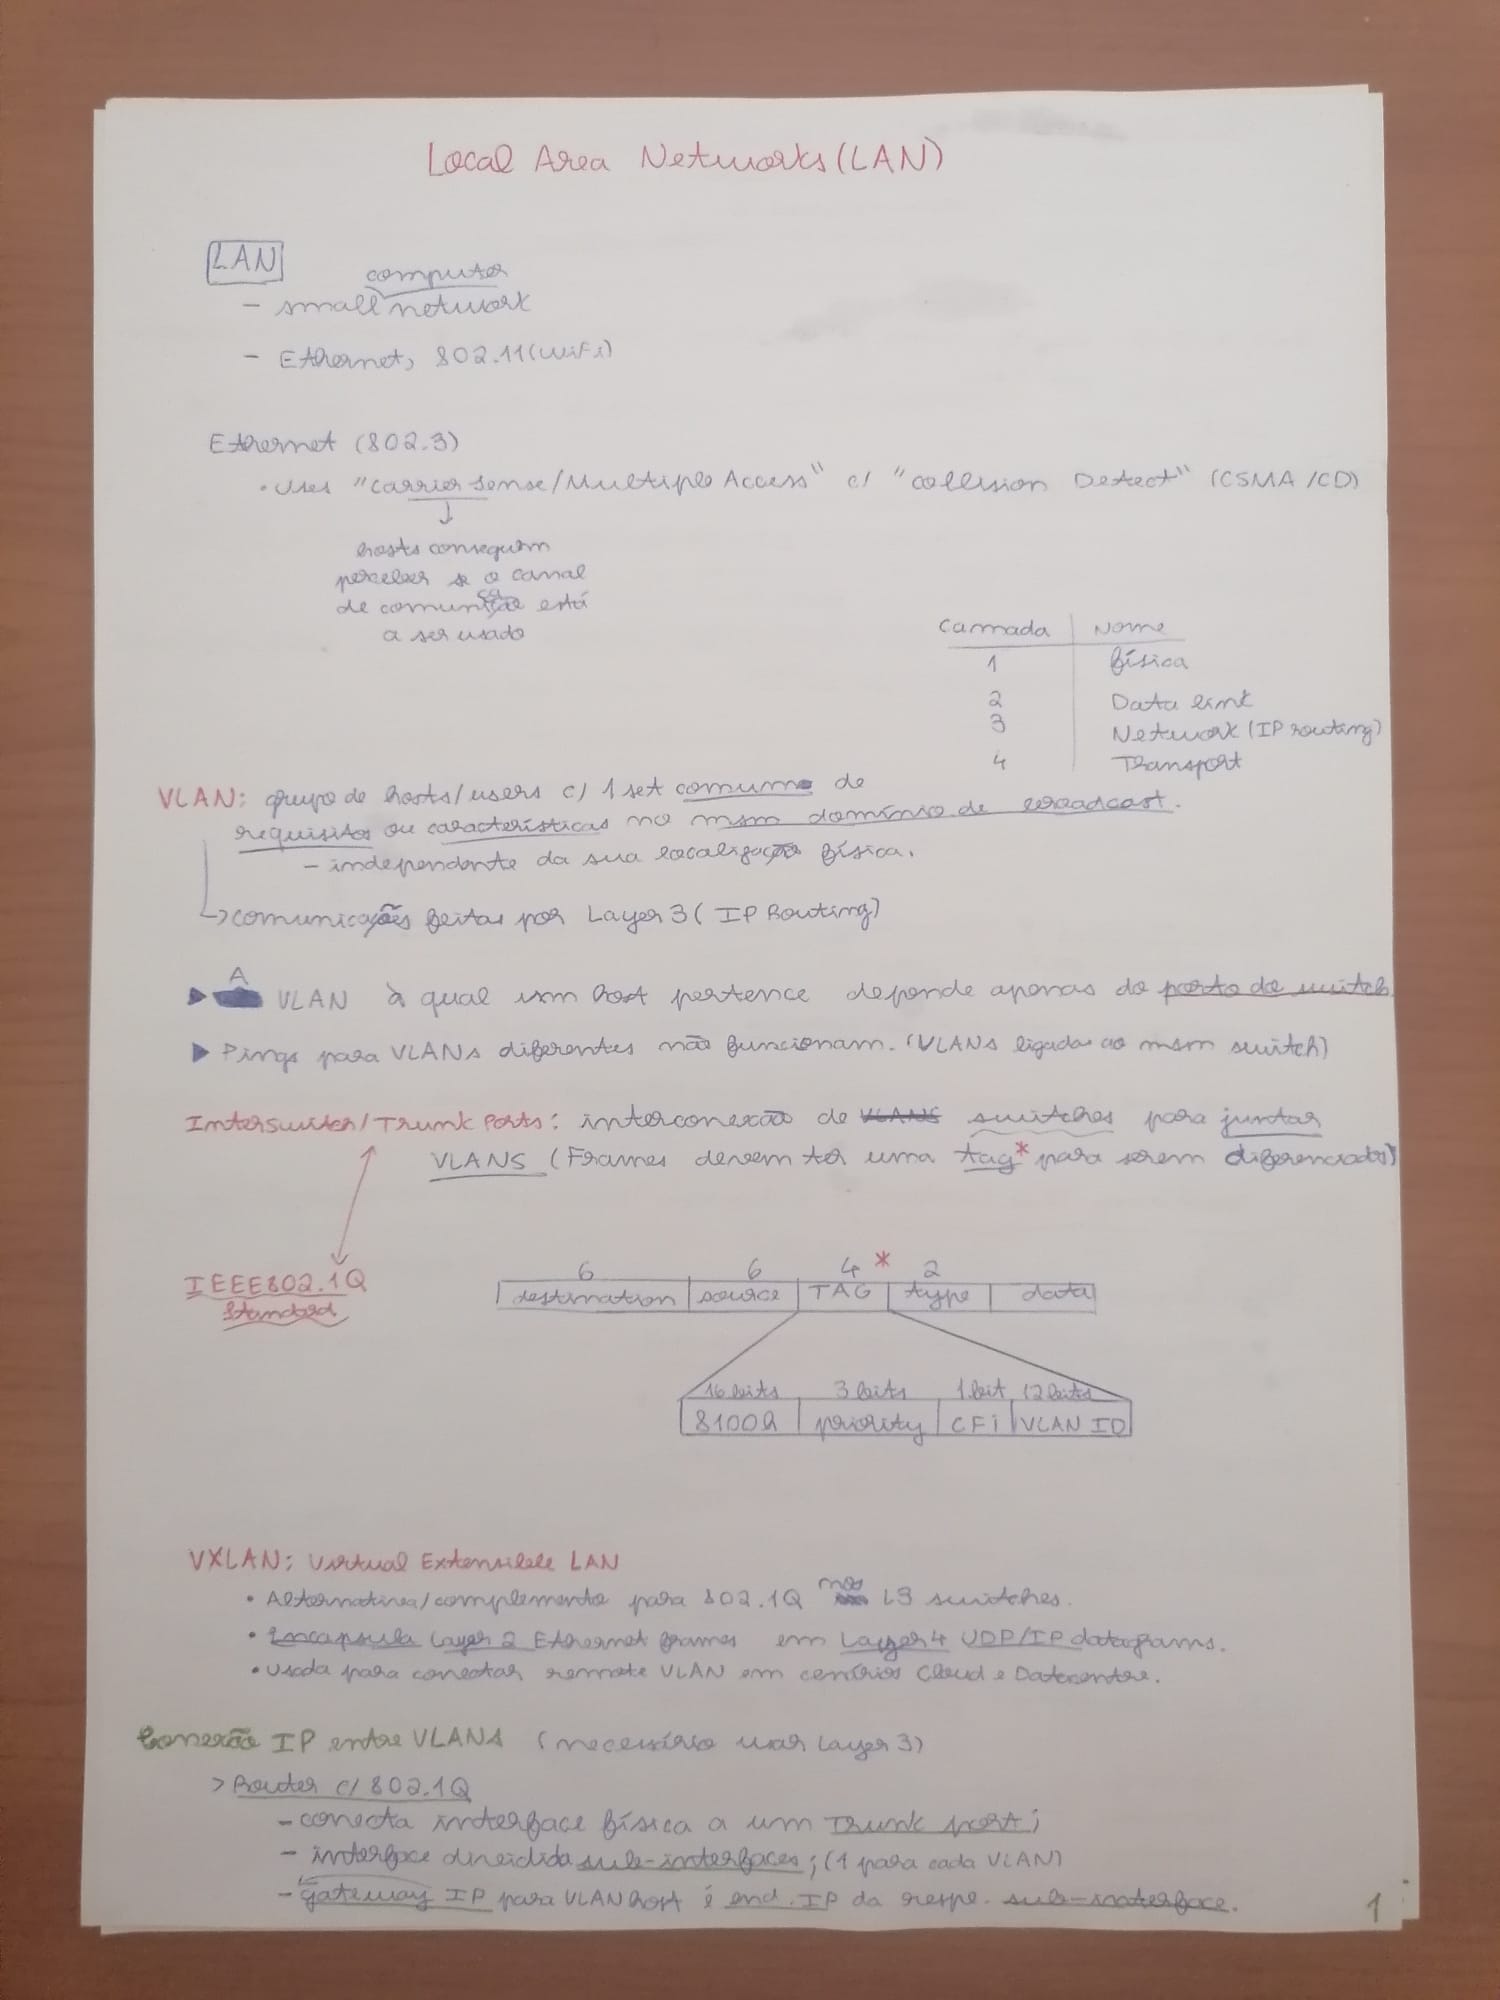 Local Area Networks (LAN)
LAN
computer
- small network
- Ethernet, 802.11 (WiFi)
Ethernet (802.3)
• Uses "Carrier Sense/Multiple Access" c/ "Collision Detect" (CSMA/CD)
↓
hosts conseguem
perceber se o canal
de comunicação está
a ser usado
Camada | Nome
1 física
2 Data link
3 Network (IP routing)
4 Transport
VLAN: grupo de hosts/users c/ 1 set comum de
requisitos ou características no msm domínio de broadcast.
- independente da sua localização física.
↳ comunicações feitas por Layer 3 (IP Routing)
▶ A VLAN à qual um host pertence depende apenas do porto do switch
▶ Pings para VLANs diferentes não funcionam. (VLANs ligadas ao msm switch)
Interswitch/Trunk Ports: interconexão de VLANS switches para juntar
VLANS (Frames devem ter uma tag* para serem diferenciados)
IEEE802.1Q
Standard
6 6 4 * 2
destination | source | TAG | type | data
16 bits 3 bits 1 bit 12 bits
8100h | priority | CFi | VLAN ID
VXLAN: Virtual Extensible LAN
• Alternativa/complemento para 802.1Q nos L3 switches.
• Encapsula Layer 2 Ethernet frames em Layer 4 UDP/IP datagrams.
• Usada para conectar remote VLAN em cenários Cloud e Datacentre.
Conexão IP entre VLANs (necessário usar Layer 3)
> Router c/ 802.1Q
- conecta interface física a um Trunk port;
- interface dividida sub-interfaces; (1 para cada VLAN)
- gateway IP para VLAN host é end. IP da respe. sub-interface.
1